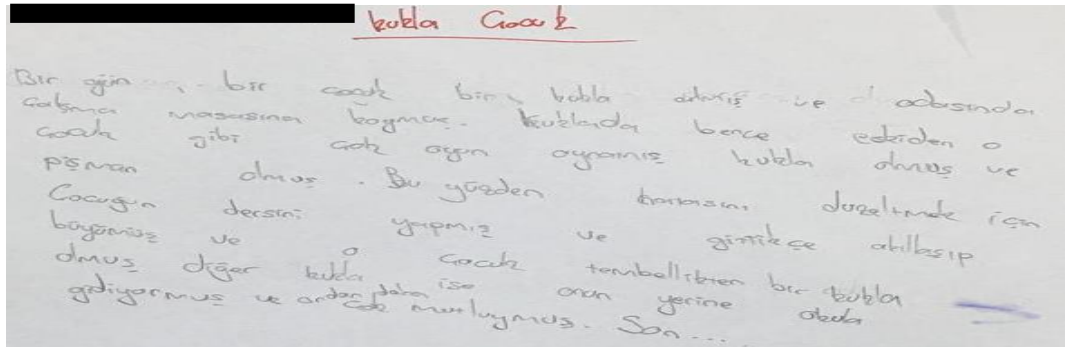 kukla Çocuk
Bir gün , bir çocuk bir kukla almış ve odasında
çalışma masasına koymuş. Kuklada bence eskiden o
çocuk gibi çok oyun oynamış kukla olmuş ve
pişman olmuş. Bu yüzden hatasını düzeltmek için
Çocuğun dersini yapmış ve gittikçe akıllaşıp
büyümüş ve o çocuk tembellikten bir kukla
olmuş diğer kukla ise onun yerine okula
gidiyormuş ve ondan daha çok mutluymuş. Son...